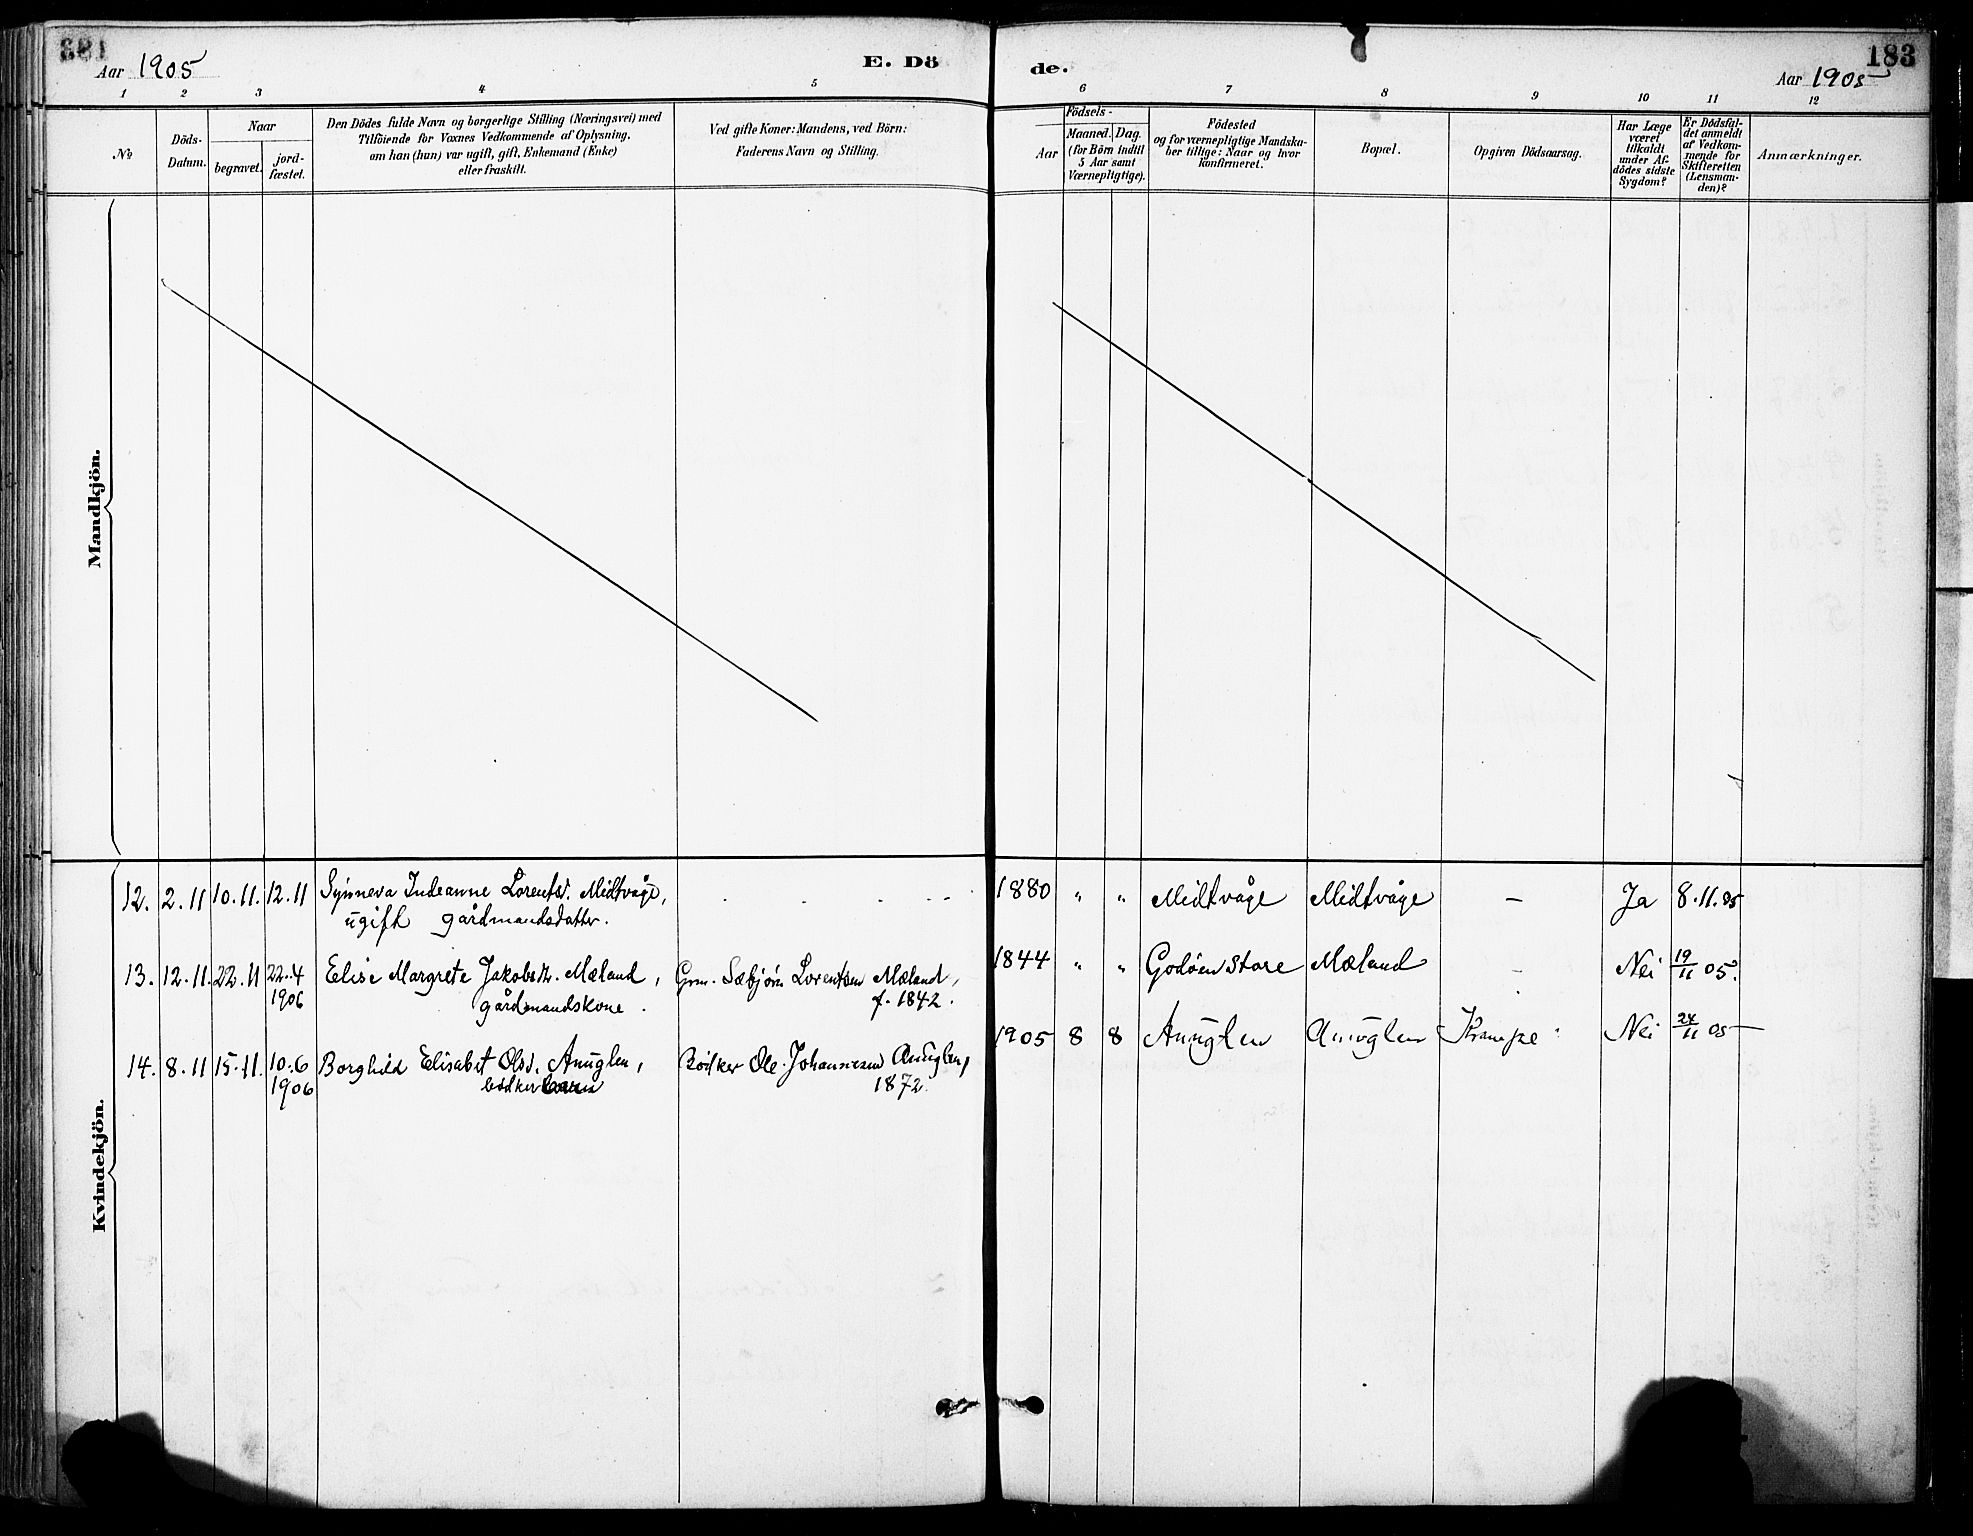 183
Aar 1905
E. Dö
de.
183
Aar 1905
1 2 3 4 5 6 7 8 9 10 11 12
№
Döds-
Datum.
Naar
begravet.
jord-
fæstet.
Den Dödes fulde Navn og borgerlige Stilling (Næringsvei) med
Tilföiende for Voxnes Vedkommende af Oplysning,
om han (hun) var ugift, gift, Enkemand (Enke)
eller fraskilt.
Ved gifte Koner: Mandens, ved Börn:
Faderens Navn og Stilling.
Födsels-
Aar
Maaned. Dag.
(for Börn indtil
5 Aar samt
Værnepligtige).
Födested
og for værnepligtige Mandska-
ber tillige: Naar og hvor
konfirmeret.
Bopæl.
Opgiven Dödsaarsag.
Har Læge
været
tilkaldt
under Af-
dödes sidste
Sygdom?
Er Dödsfal-
det anmeldt
af Vedkom-
mende for
Skifteretten
(Lensman-
den)?
Anmærkninger.
Mandkjön.
Kvindekjön.
12. 2.11 10.11. 12.11 Synneva Indeanne Lorentsd. Midtvåge, 1880 " " Midtvåge Midtvåge — Ja 8.11.05
ugift gårdmandsdatter.
13. 12.11. 22.11 22.4 Elise Margrete Jakobsdtr. Mæland, Grm. Sæbjörn Lorentsen Mæland, 1844 " " Godøen Store Mæland — Nei 19/11 05.
1906 gårdmandskone. f. 1842.
14. 8.11 15.11. 10.6 Borghild Elisabet Olsd. Anuglen, Bödker Ole Johannesen Anuglen, 1905 8 8 Anuglen Anuglen Krampe Nei 24/11 05
1906 bödkerbarn 1872.